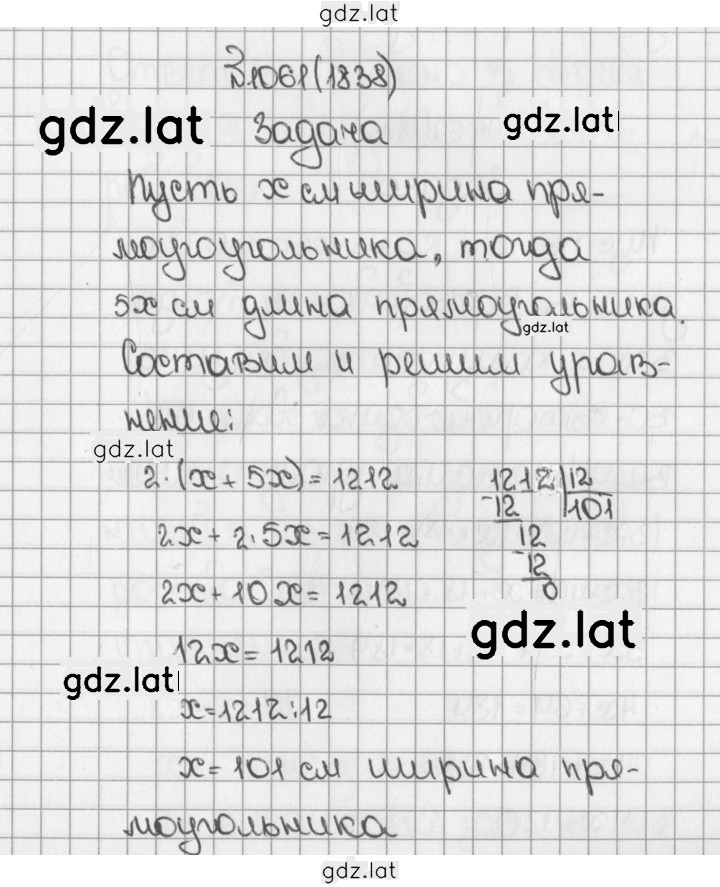 gdz.lat
№1061(1838)
gdz.lat Задача gdz.lat
Пусть x см ширина пря-
моугоугольника, тогда
5x см длина прямоугольника.
gdz.lat
Составим и решим урав-
нение:
gdz.lat
2·(x + 5x) = 1212
2x + 2·5x = 1212
2x + 10x = 1212
12x = 1212
x = 1212:12
x = 101 см ширина пря-
моугольника
1212 | 12
-12 | 101
12
-12
0
gdz.lat
gdz.lat
gdz.lat